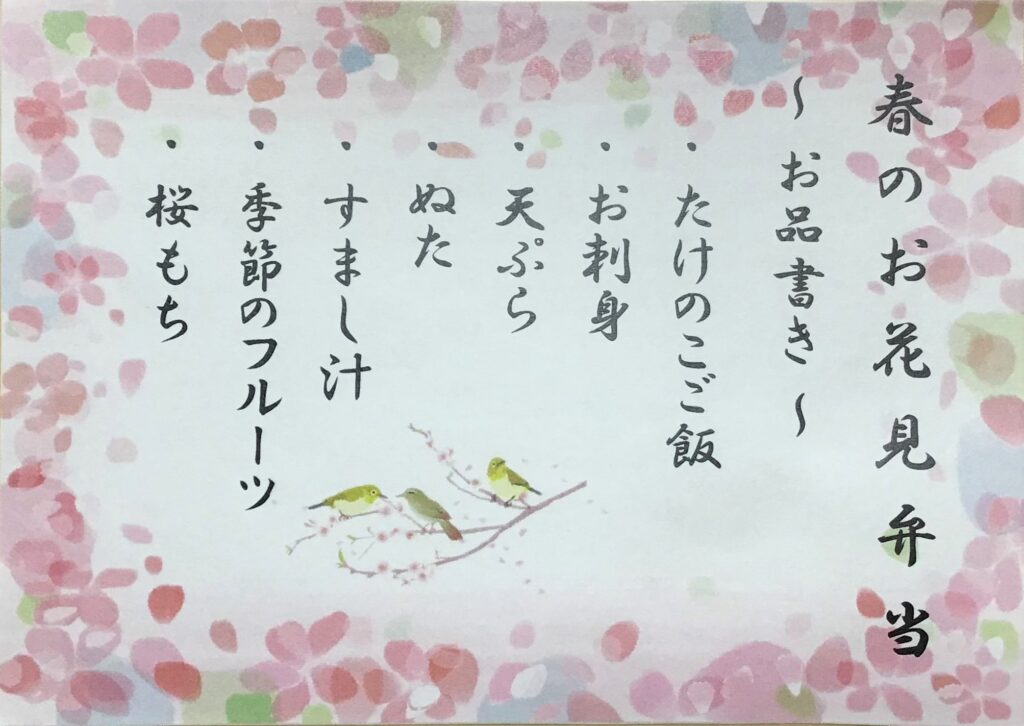 春のお花見弁当
～お品書き～
・たけのこご飯
・お刺身
・天ぷら
・ぬた
・すまし汁
・季節のフルーツ
・桜もち